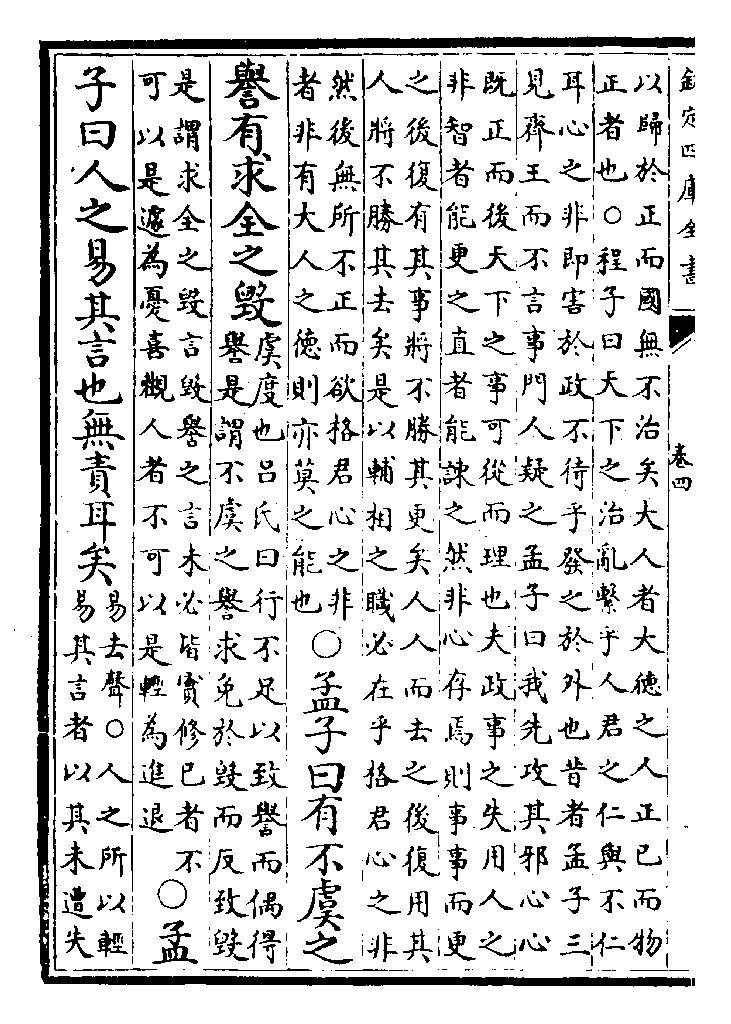 欽定四庫全書
卷四
以歸於正而國無不治矣大人者大德之人正己而物
正者也○程子曰天下之治亂繫乎人君之仁與不仁
耳心之非即害於政不待乎發之於外也昔者孟子三
見齊王而不言事門人疑之孟子曰我先攻其邪心心
既正而後天下之事可從而理也夫政事之失用人之
非智者能更之直者能諫之然非心存焉則事事而更
之後復有其事將不勝其更矣人人而去之後復用其
人將不勝其去矣是以輔相之職必在乎格君心之非
然後無所不正而欲格君心之非
者非有大人之德則亦莫之能也
○孟子曰有不虞之
譽有求全之毀
虞度也呂氏曰行不足以致譽而偶得
譽是謂不虞之譽求免於毀而反致毀
是謂求全之毀言毀譽之言未必皆實修己者不
可以是遽為憂喜觀人者不可以是輕為進退
○孟
子曰人之易其言也無責耳矣
易去聲○人之所以輕
易其言者以其未遭失